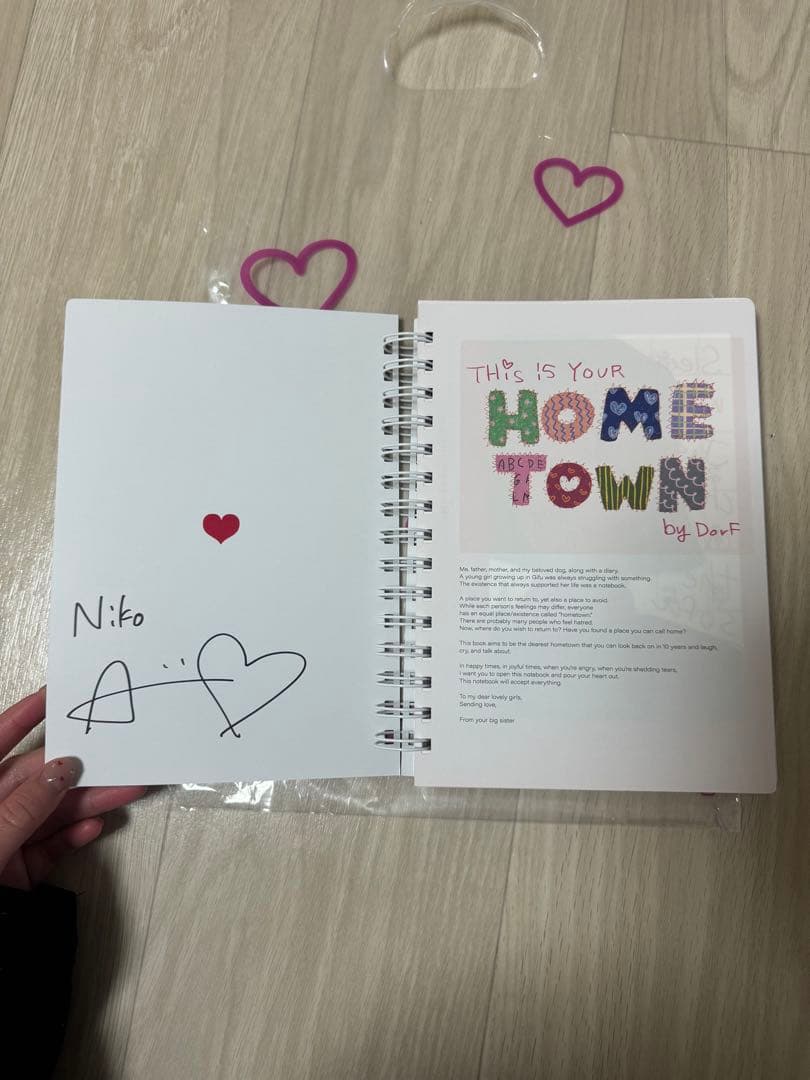 Niko
Aii
THiS iS YOUR
HOME
TOWN
ABCDE
by DorF
Me, father, mother, and my beloved dog, along with a diary.
A young girl growing up in Gifu was always struggling with something.
The existence that always supported her life was a notebook.
A place you want to return to, yet also a place to avoid.
While each person's feelings may differ, everyone
has an equal place/existence called "hometown."
There are probably many people who feel hatred.
Now, where do you wish to return to? Have you found a place you can call home?
This book aims to be the dearest hometown that you can look back on in 10 years and laugh,
cry, and talk about.
In happy times, in joyful times, when you're angry, when you're shedding tears,
I want you to open this notebook and pour your heart out.
This notebook will accept everything.
To my dear lovely girls,
Sending love,
From your big sister